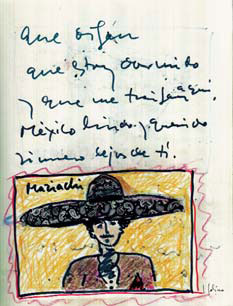 que digan
que estoy dormido
y que me traigan aquí.
México lindo y querido
si muero lejos de ti.
Mariachi